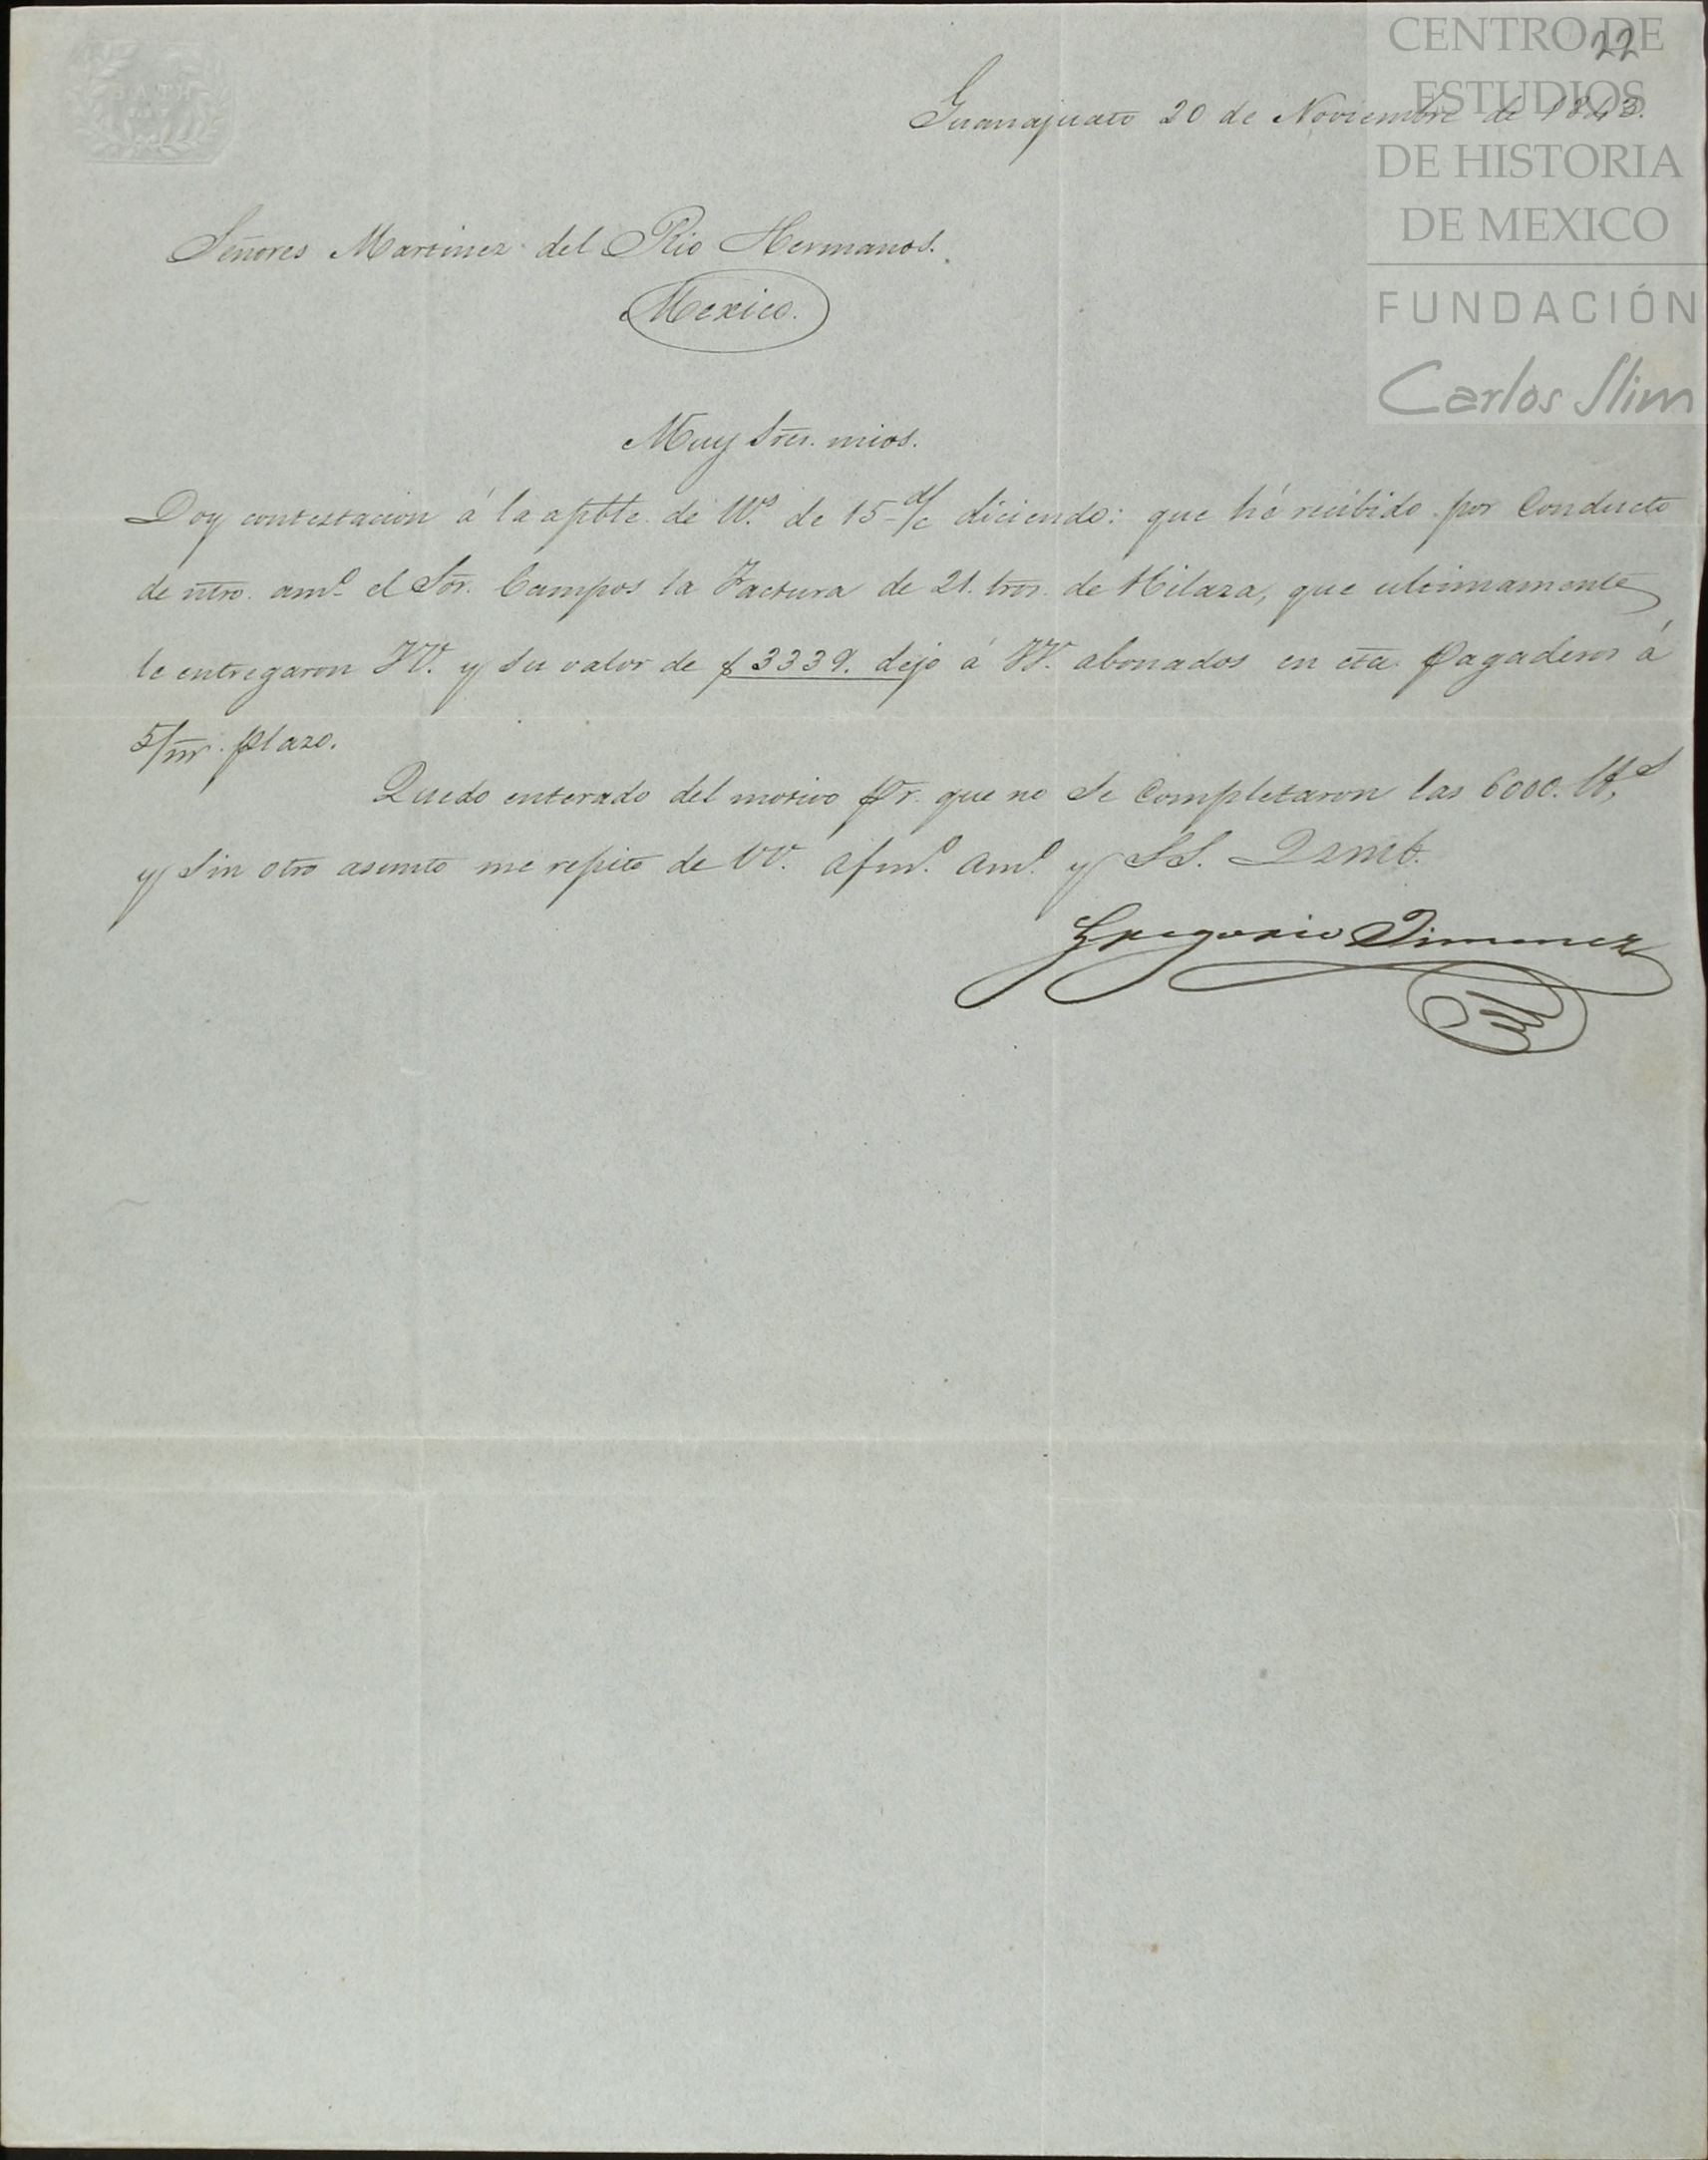 22
CENTRO DE
ESTUDIOS
DE HISTORIA
DE MEXICO
FUNDACIÓN
Carlos Slim
Guanajuato 20 de Noviembre de 1843.
Señores Martinez del Rio Hermanos.
Mexico.
Muy Sres. mios.
Doy contextacion á la apble. de VV.s de 15 d/c diciendo: que hé recibido por Conducto
de ntro. amo. el Sor. Campos la Factura de 21. tros. de Hilaza, que ultimamente
le entregaron VV. y su valor de $ 3339. dejo á VV. abonados en cta. pagaderos á
5/m. plazo.
Quedo enterado del motivo pr. que no se Completaron las 6000. lb.s
y Sin otro asunto me repito de VV. afmo. amo. y SS. Q.S.M.B.
Gregorio Jimenez